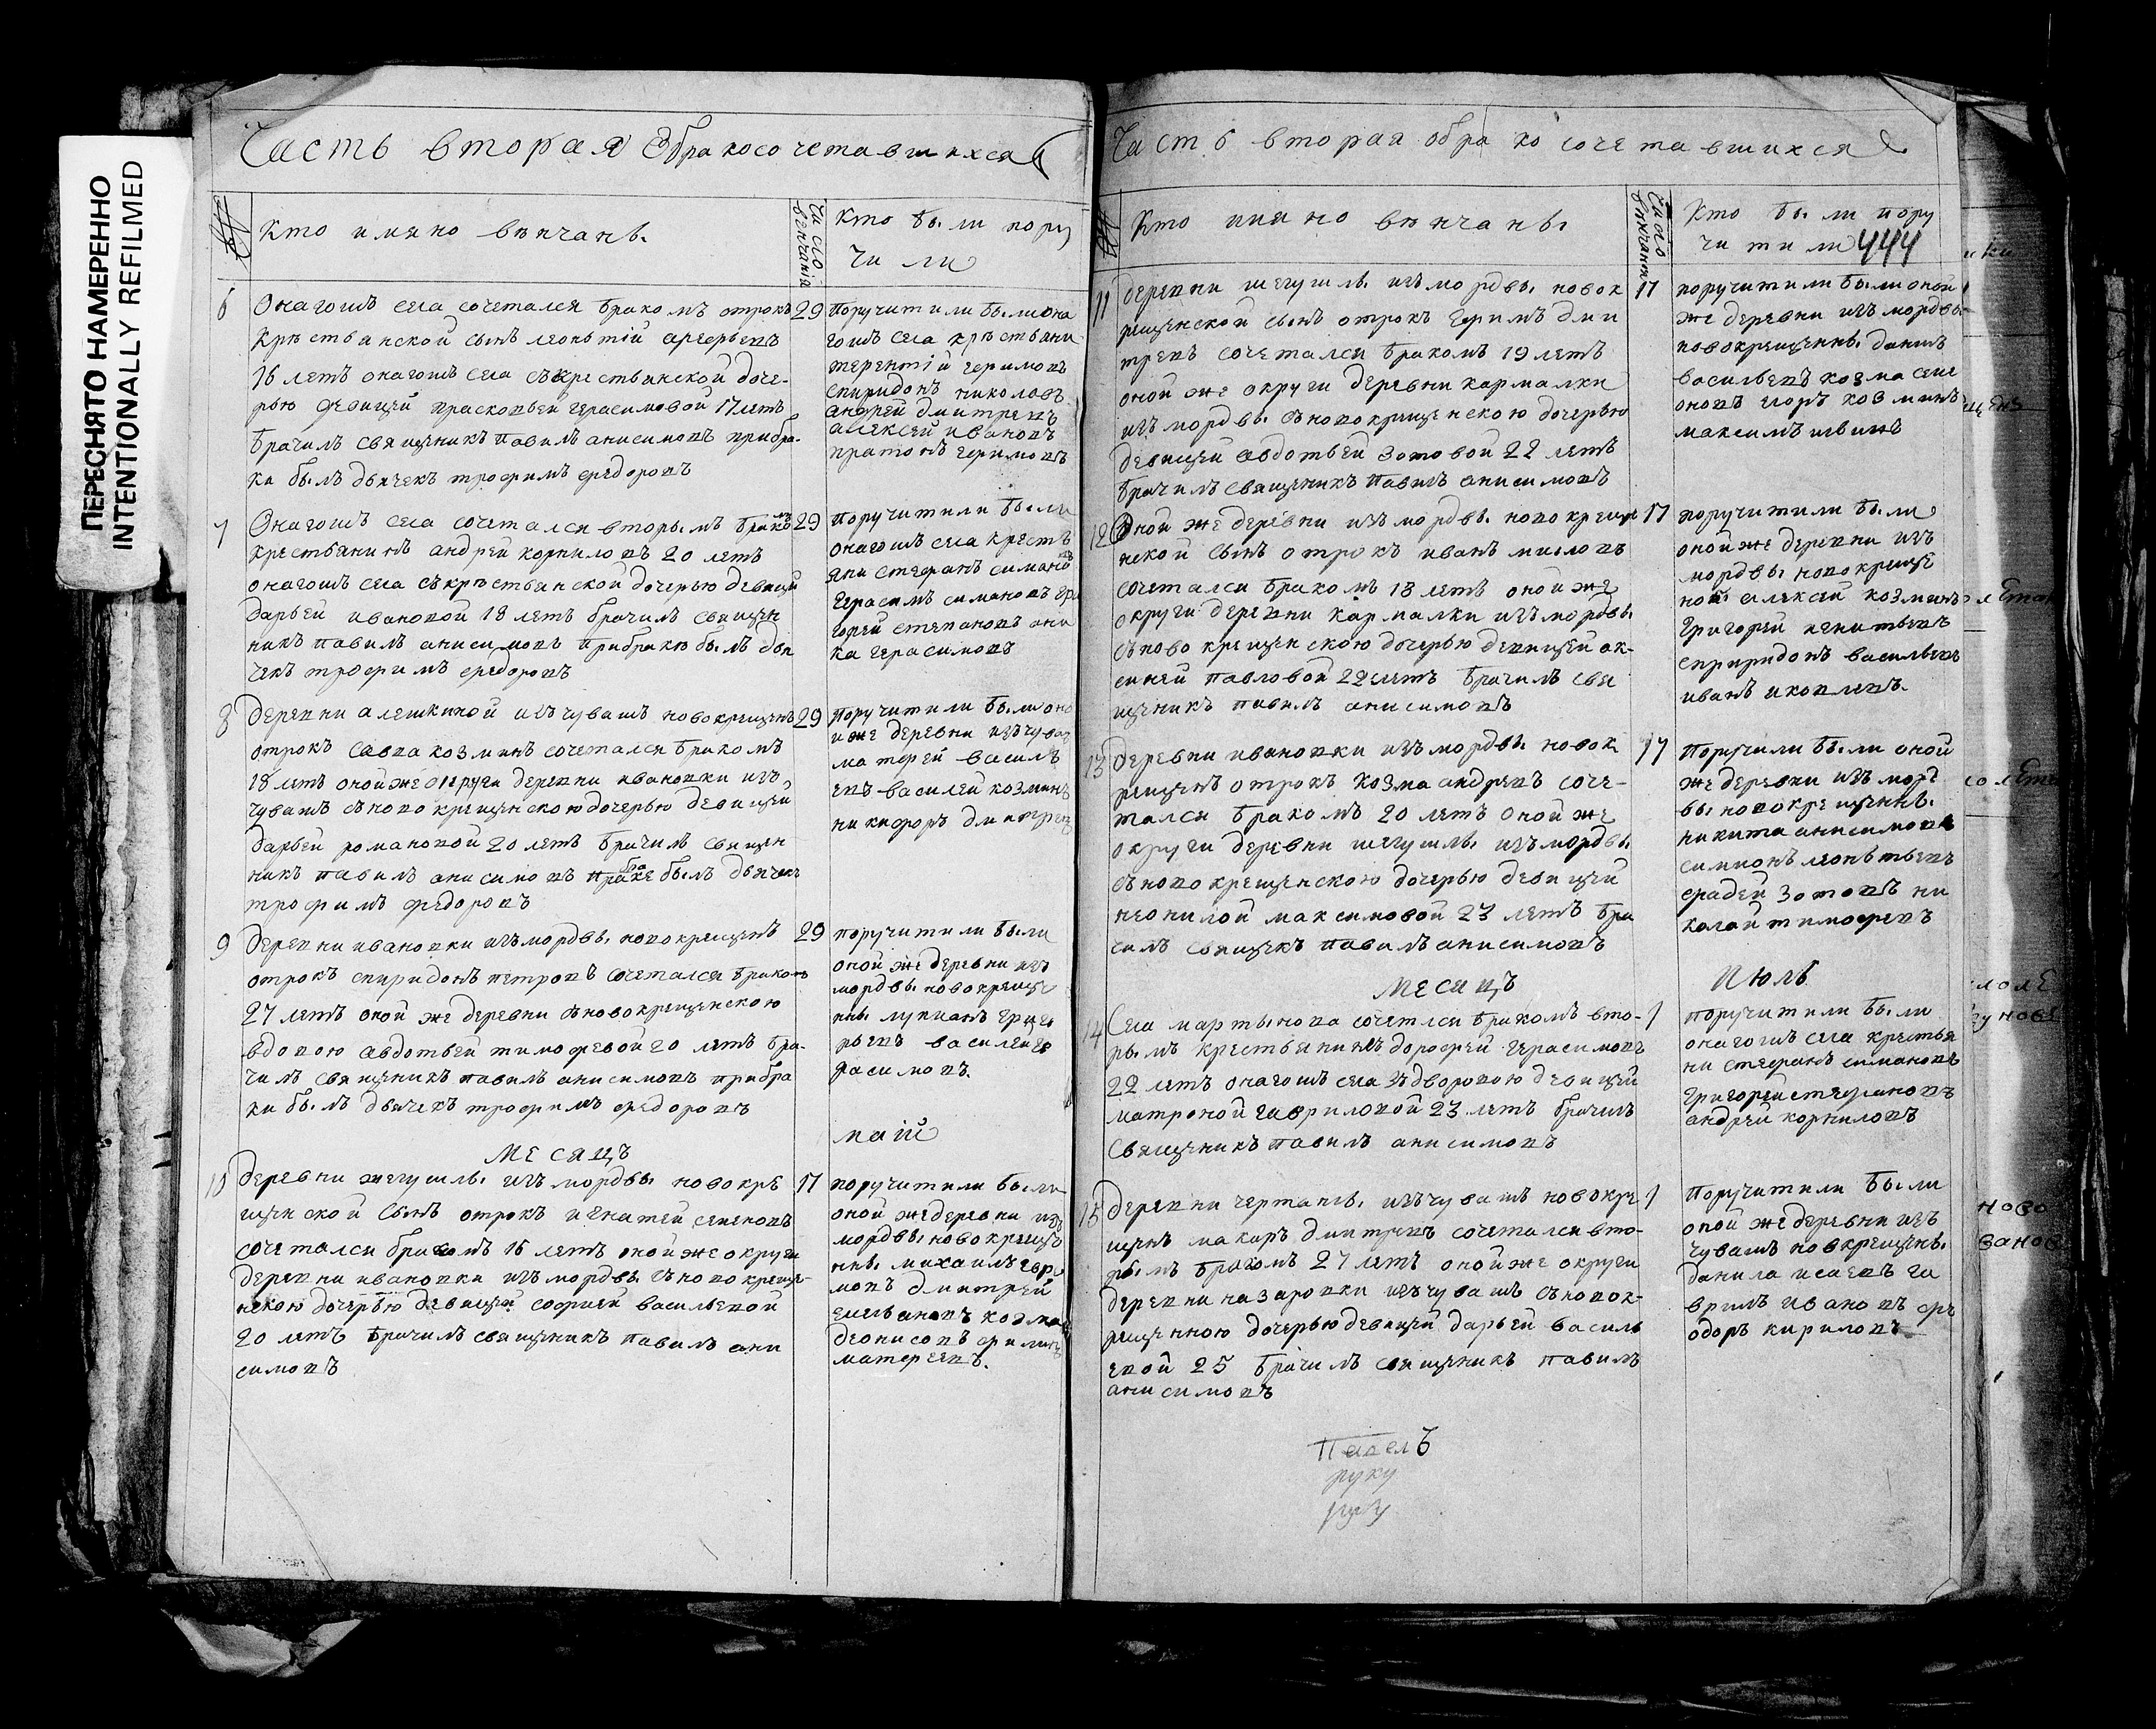 ПЕРЕСНЯТО НАМЕРЕННО
INTENTIONALLY REFILMED
Часть вторая Обракосочетавшихся
Кто имяно венчаны
Число венчания
Кто были пору
чили
6 Онагошъ села сочетался бракомъ отрокъ 29
крестьянской сынъ леонътий
16 летъ онагошъ села съкрестьянской доче-
рью девицей прасковьей герасимовой 17 летъ
брачилъ священикъ павилъ анисимовъ прибра-
ка былъ дьячекъ трофимъ федоровъ
Поручители были она
гошъ села крестьяни
терентий ефимовъ
спиридонъ николовъ
андрей дмитревъ
алексей ивановъ
ефимовъ
7 Онагошъ села сочетался вторымъ бракомъ 29
крестьянинъ андрей корниловъ 20 летъ
онагошъ села съкрестьянской дочерью девицей
дарьей ивановой 18 летъ брачилъ священ
никъ павилъ анисимовъ прибраке былъ дья
чекъ трофимъ федоровъ
поручители были
онагошъ села кресть
яни стефанъ симановъ
герасимъ симановъ гри
горей степановъ они
ка герасимовъ
8 деревни алешкиной изъ чувашъ новокрещенъ 29
отрокъ савва козминъ сочетался бракомъ
18 летъ оной же округи деревни ивановки изъ
чувашъ сновокрещенскою дочерью девицей
дарьей романовой 20 летъ брачилъ священ
никъ павилъ анисимовъ прибраке былъ дьячекъ
трофимъ федоровъ
поручители были оно
и же деревни изъ чува
матфей василь
евъ василей козминъ
никифоръ дмитрев
9 деревни ивановки изъ мордвы новокрещенъ 29
отрокъ спиридонъ петровъ сочетался бракомъ
27 летъ оной же деревни сновокрещенскою
вдовою авдотьей тимофевой 20 летъ бра-
чилъ священикъ павилъ анисимовъ прибра
ки былъ дьячекъ трофимъ федоровъ
поручители были
оной же деревни изъ
мордвы новокреще
ны лукианъ григо
рьевъ василей ге
расимовъ.
месяцъ маий
10 деревни жегушлы изъ мордвы новокре 17
щенской сынъ отрокъ игнатей семеновъ
сочетался бракомъ 16 летъ оной же округи
деревни ивановки изъ мордвы сновокреще-
нскою дочерью девицей софией васильевой
20 летъ брачилъ священикъ павилъ ани
симовъ
поручители были
оной же деревни изъ
мордвы новокреще
ны михаилъ ефи
мовъ дмитрей
емельяновъ козма
деонисовъ филипъ
матфеевъ.
Часть вторая обракосочетавшихся
Кто имяно венчаны
Число венчания
Кто были пору
чители 444
11 деревни шегушлы изъ мордвы новок 17
рещенской сынъ отрокъ ефимъ дми
тревъ сочетался бракомъ 19 летъ
оной же округи деревни кармалки
изъ мордвы сновокрещенскою дочерью
девицей авдотьей зотовой 22 летъ
брачилъ священикъ павилъ анисимовъ
поручители были оной
же деревни изъ мордвы
новокрещенны данилъ
васильевъ козма семе
оновъ егоръ козминъ
максимъ
12 Оной же деревни изъ мордвы новокреще 17
нской сынъ отрокъ иванъ
сочетался бракомъ 18 летъ оной же
округи деревни кармалки изъ мордвы
сновокрещенскою дочерью девицей ак-
синей павловой 22 летъ брачилъ свя
щеникъ павилъ анисимовъ
поручители были
оной же деревни изъ
мордвы новокреще
ной алексей козминъ
григорей
спиридонъ васильевъ
иванъ яковлевъ.
13 деревни ивановки изъ мордвы новок 17
рещенъ отрокъ козма андревъ соче-
тался бракомъ 20 летъ оной же
округи деревни шегушлы изъ мордвы
сновокрещенскою дочерью девицей
неонилой максимовой 23 летъ бра
чилъ свящекъ павилъ анисимовъ
Поручили были оной
же деревни изъ морд
вы новокрещенны
никита анисимовъ
симионъ леонтьевъ
фадей зотовъ ни
колай тимофевъ
месяцъ июль
14 села мартынова сочетлся бракомъ вто- 1
рымъ крестьянинъ дорофей герасимовъ
22 летъ онагошъ села здворовою девицей
матроной гавриловой 23 летъ брачилъ
священикъ павилъ анисимовъ
поручители были
онагошъ села крестья
ни стефанъ симановъ
григорей стефановъ
андрей корниловъ
15 деревни чертанлы изъ чувашъ новокре 1
щенъ макаръ дмитревъ сочетался вто-
рымъ бракомъ 27 летъ оной же округи
деревни назаровки изъ чувашъ сновок-
рещенною дочерью девицей дарьей василь
евой 25 брачилъ священикъ павилъ
анисимовъ
поручители были
оной же деревни изъ
чувашъ новкрещены
данила исаевъ га
врилъ ивановъ фе
одоръ кириловъ
Павелъ
руку